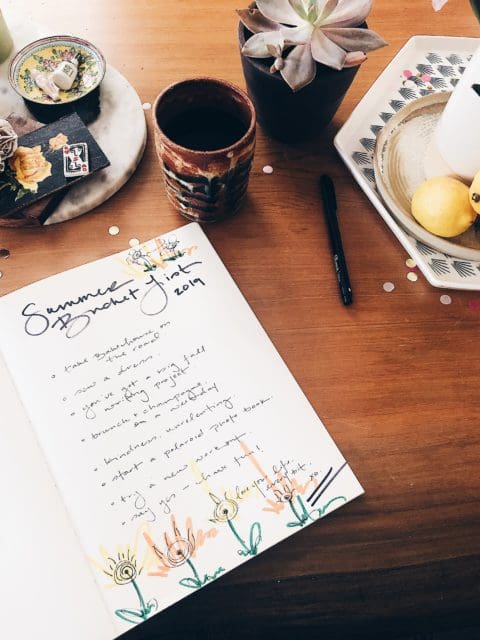 Summer
Bucket List
2019
• take Bakehouse on
the road
• sew a dress.
• you've got a big fall
writing project
• brunch + champagne.
on a weekday
• kindness, unrelenting
• start a polaroid photo book.
• try a new workout.
• say yes - have fun!
love your life.
every bit. xo.